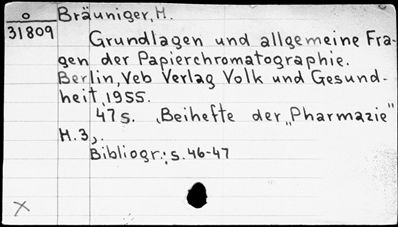 o
31809
Bräuniger, H.
Grundlagen und allgemeine Fra-
gen der Papierchromatographie.
Berlin, Veb Verlag Volk und Gesund-
heit, 1955.
47 s. „Beihefte der „Pharmazie"
H.3„.
Bibliogr.: s. 46-47
X